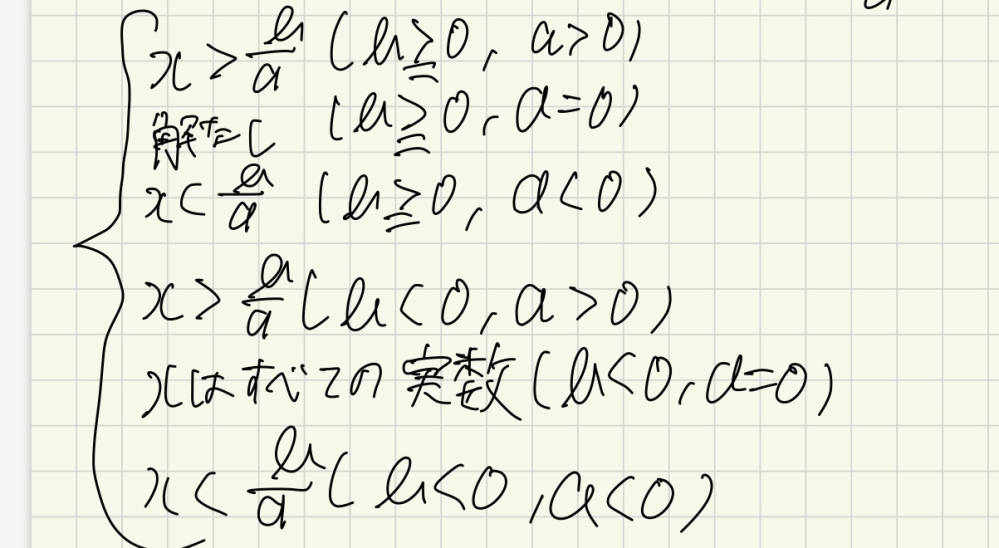 x > b/a (b ≧ 0, a > 0)
解なし (b ≧ 0, a = 0)
x < b/a (b ≧ 0, a < 0)
x > b/a (b < 0, a > 0)
xはすべての実数 (b < 0, a = 0)
x < b/a (b < 0, a < 0)